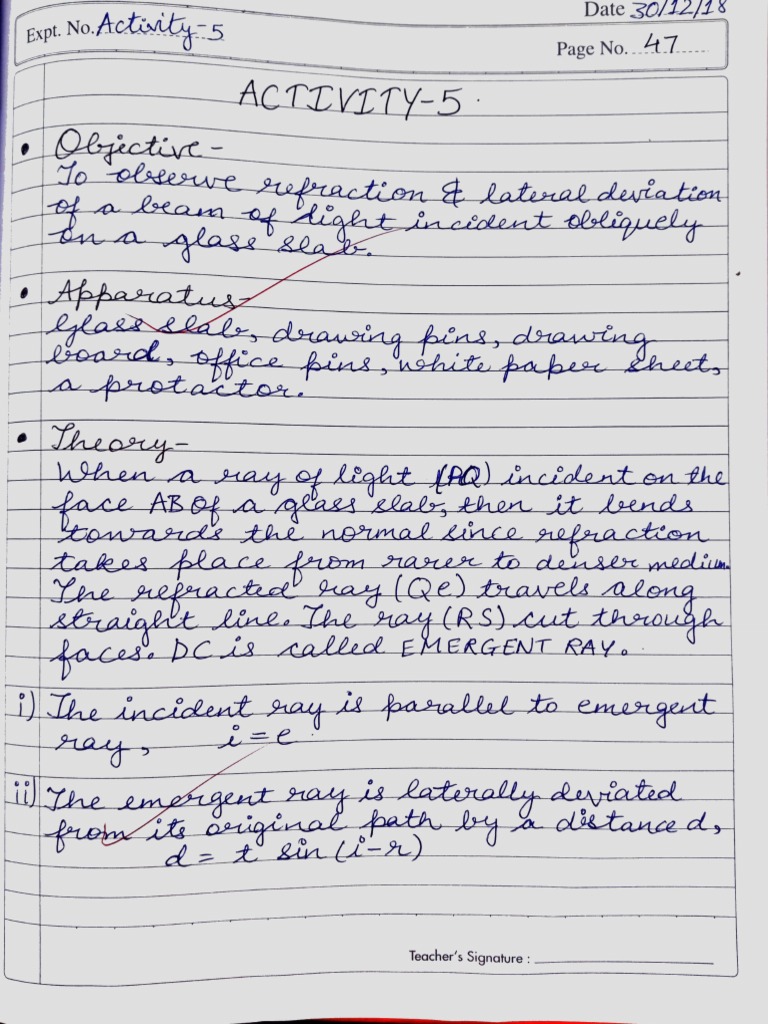 Date 30/12/18
Expt. No. Activity-5
Page No. 47
ACTIVITY-5
• Objective-
To observe refraction & lateral deviation
of a beam of light incident obliquely
on a glass slab.
• Apparatus-
Glass slab, drawing pins, drawing
board, office pins, white paper sheet,
a protactor.
• Theory-
When a ray of light (PQ) incident on the
face AB of a glass slab, then it bends
towards the normal since refraction
takes place from rarer to denser medium.
The refracted ray (Qe) travels along
straight line. The ray (RS) cut through
faces. DC is called EMERGENT RAY.
i) The incident ray is parallel to emergent
ray, i = e
ii) The emergent ray is laterally deviated
from its original path by a distance d,
d = t sin (i-r)
Teacher's Signature :